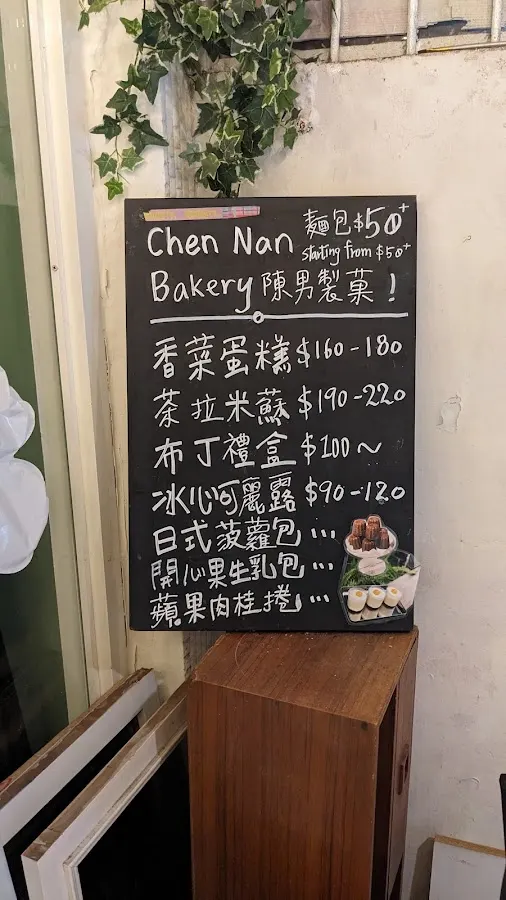 Chen Nan 麵包$50+
starting from $50+
Bakery 陳男製菓!
香菜蛋糕$160-180
茶拉米蘇$190-220
布丁禮盒$100~
冰心可麗露$90-120
日式菠蘿包…
開心果生乳包…
蘋果肉桂捲…